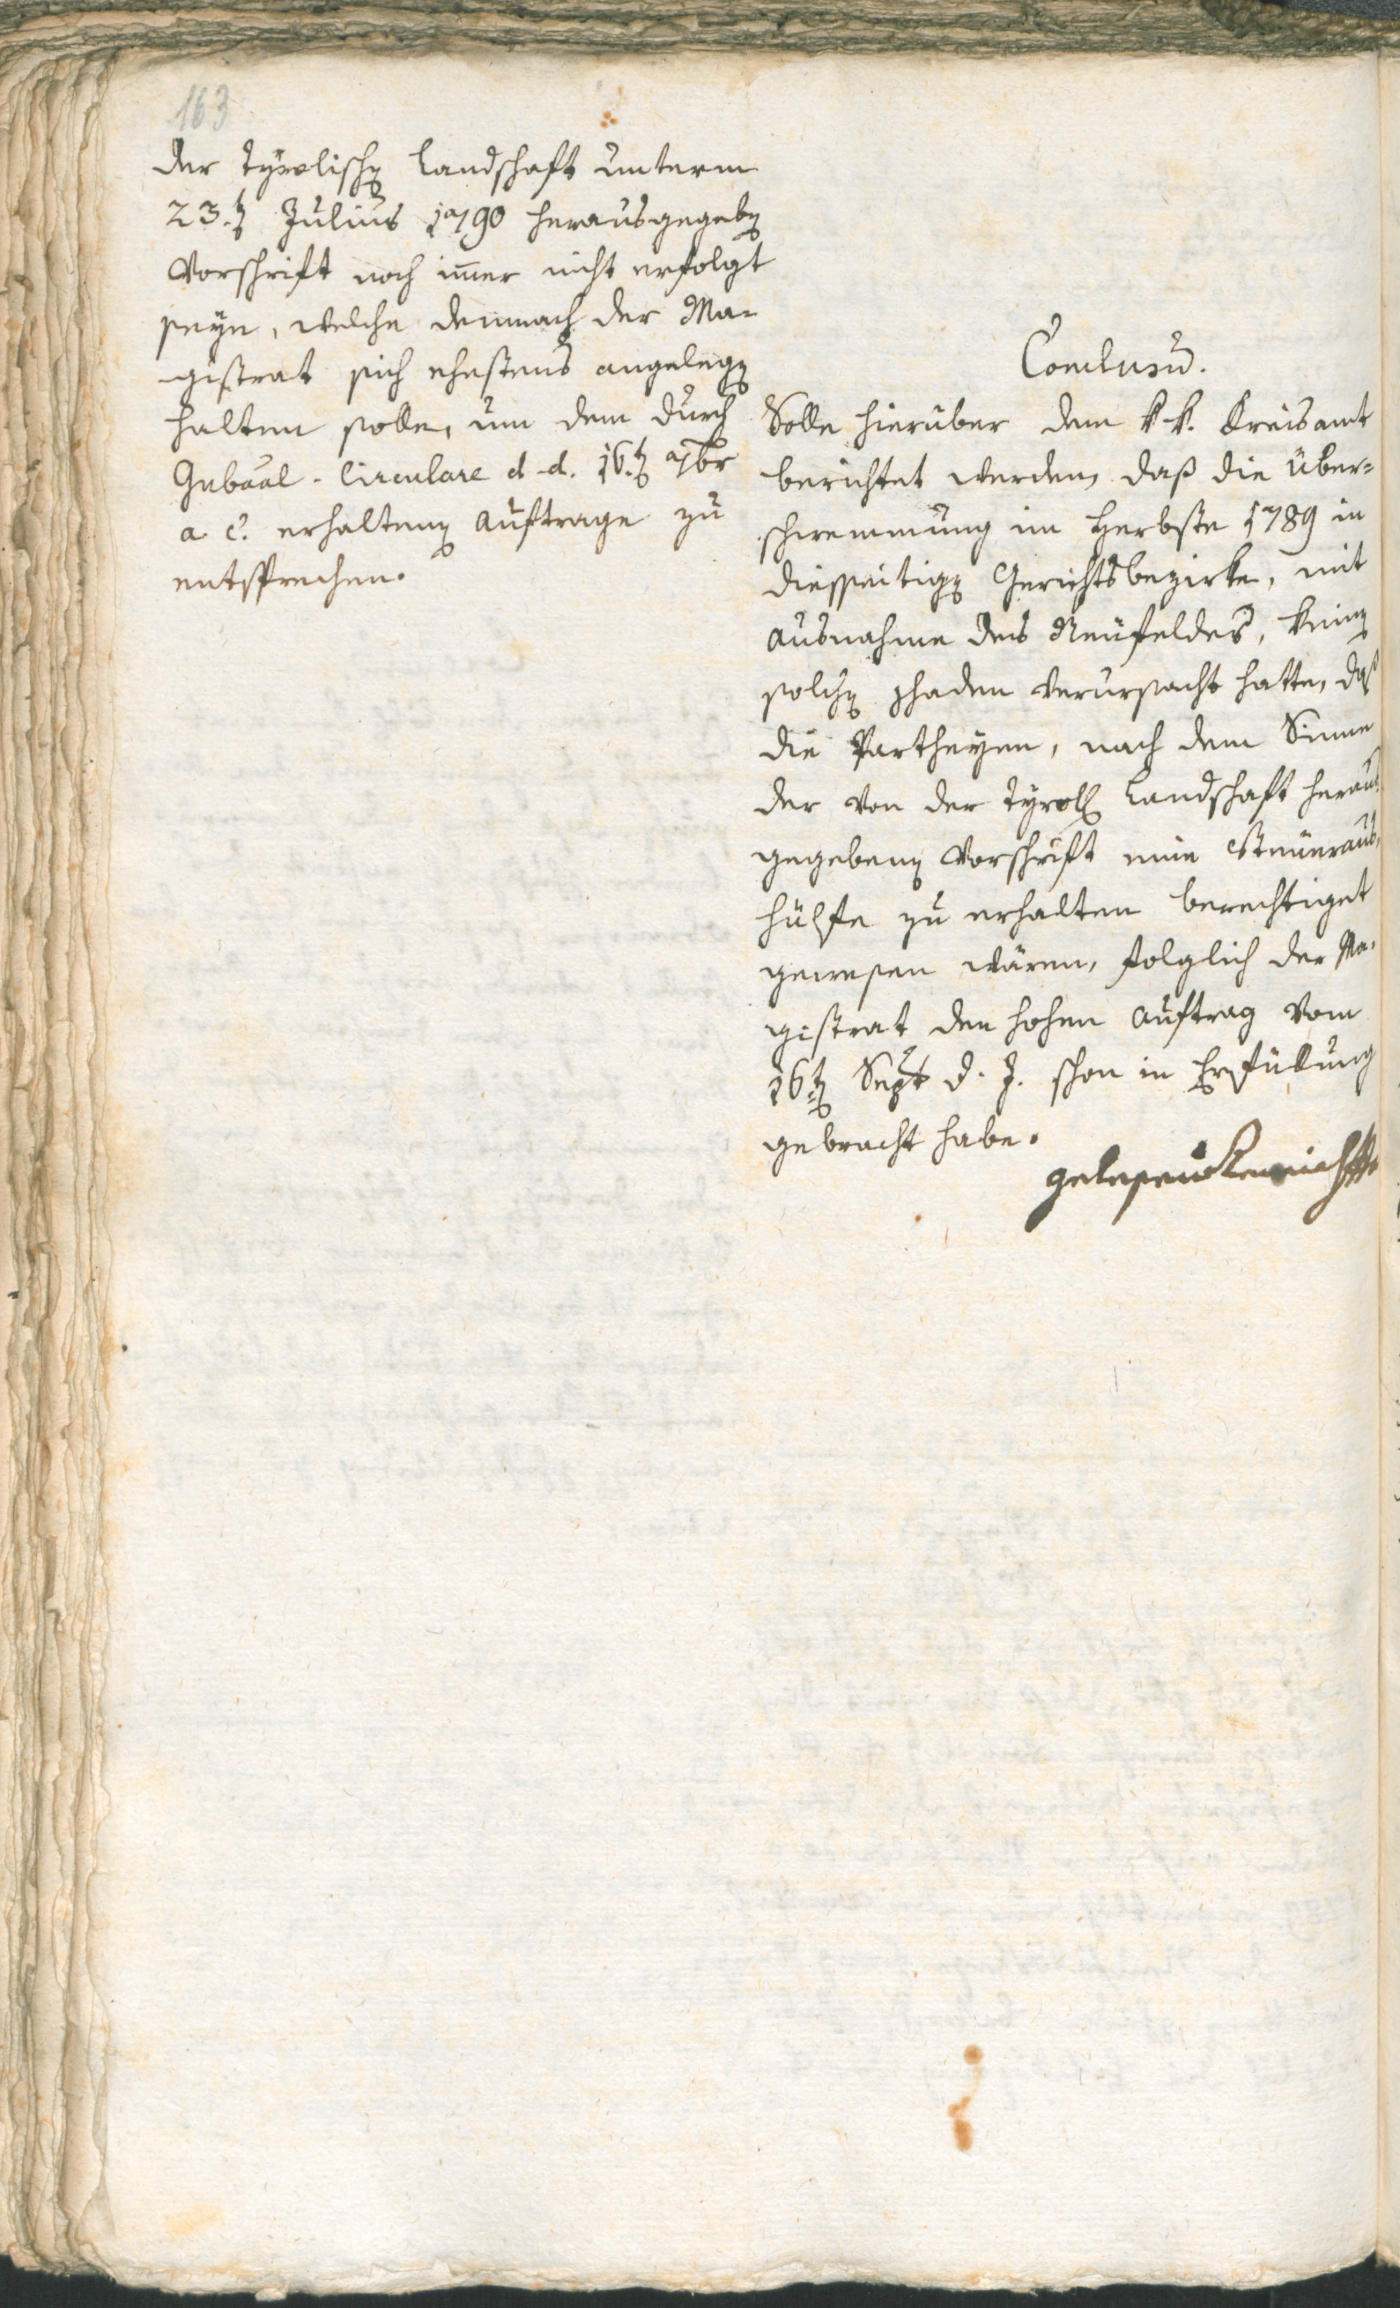 163
der Tyrolischen Landschaft unterm
23.ten Julius 1790 herausgegeben
Vorschrift noch imer nicht erfolgt
seye, welche demnach der Ma-
gistrat sich ehestens angelegen
halten solle, um dem durch
Gubaal-Circulare d. d. 16.ten 7br
a. c. erhaltenen Auftrage zu
entsprechen.
Conclusū.
Solle hierüber dem k. k. Kreisamt
berichtet werden, daß die Über-
schwemmung im Herbste 1789 in
diesseitigen Gerichtsbezirke, mit
Ausnahme des Neufeldes, keinen
solchen Schaden verursacht hatte, daß
die Partheyen, nach dem Sinne
der von der Tyroll. Landschaft heraus-
gegebenen Vorschrift eine Steueraus-
hülfe zu erhalten berechtiget
gewesen wären, folglich der Ma-
gistrat den hohen Auftrag vom
16ten Sept. d. J. schon in Erfüllung
gebracht habe.